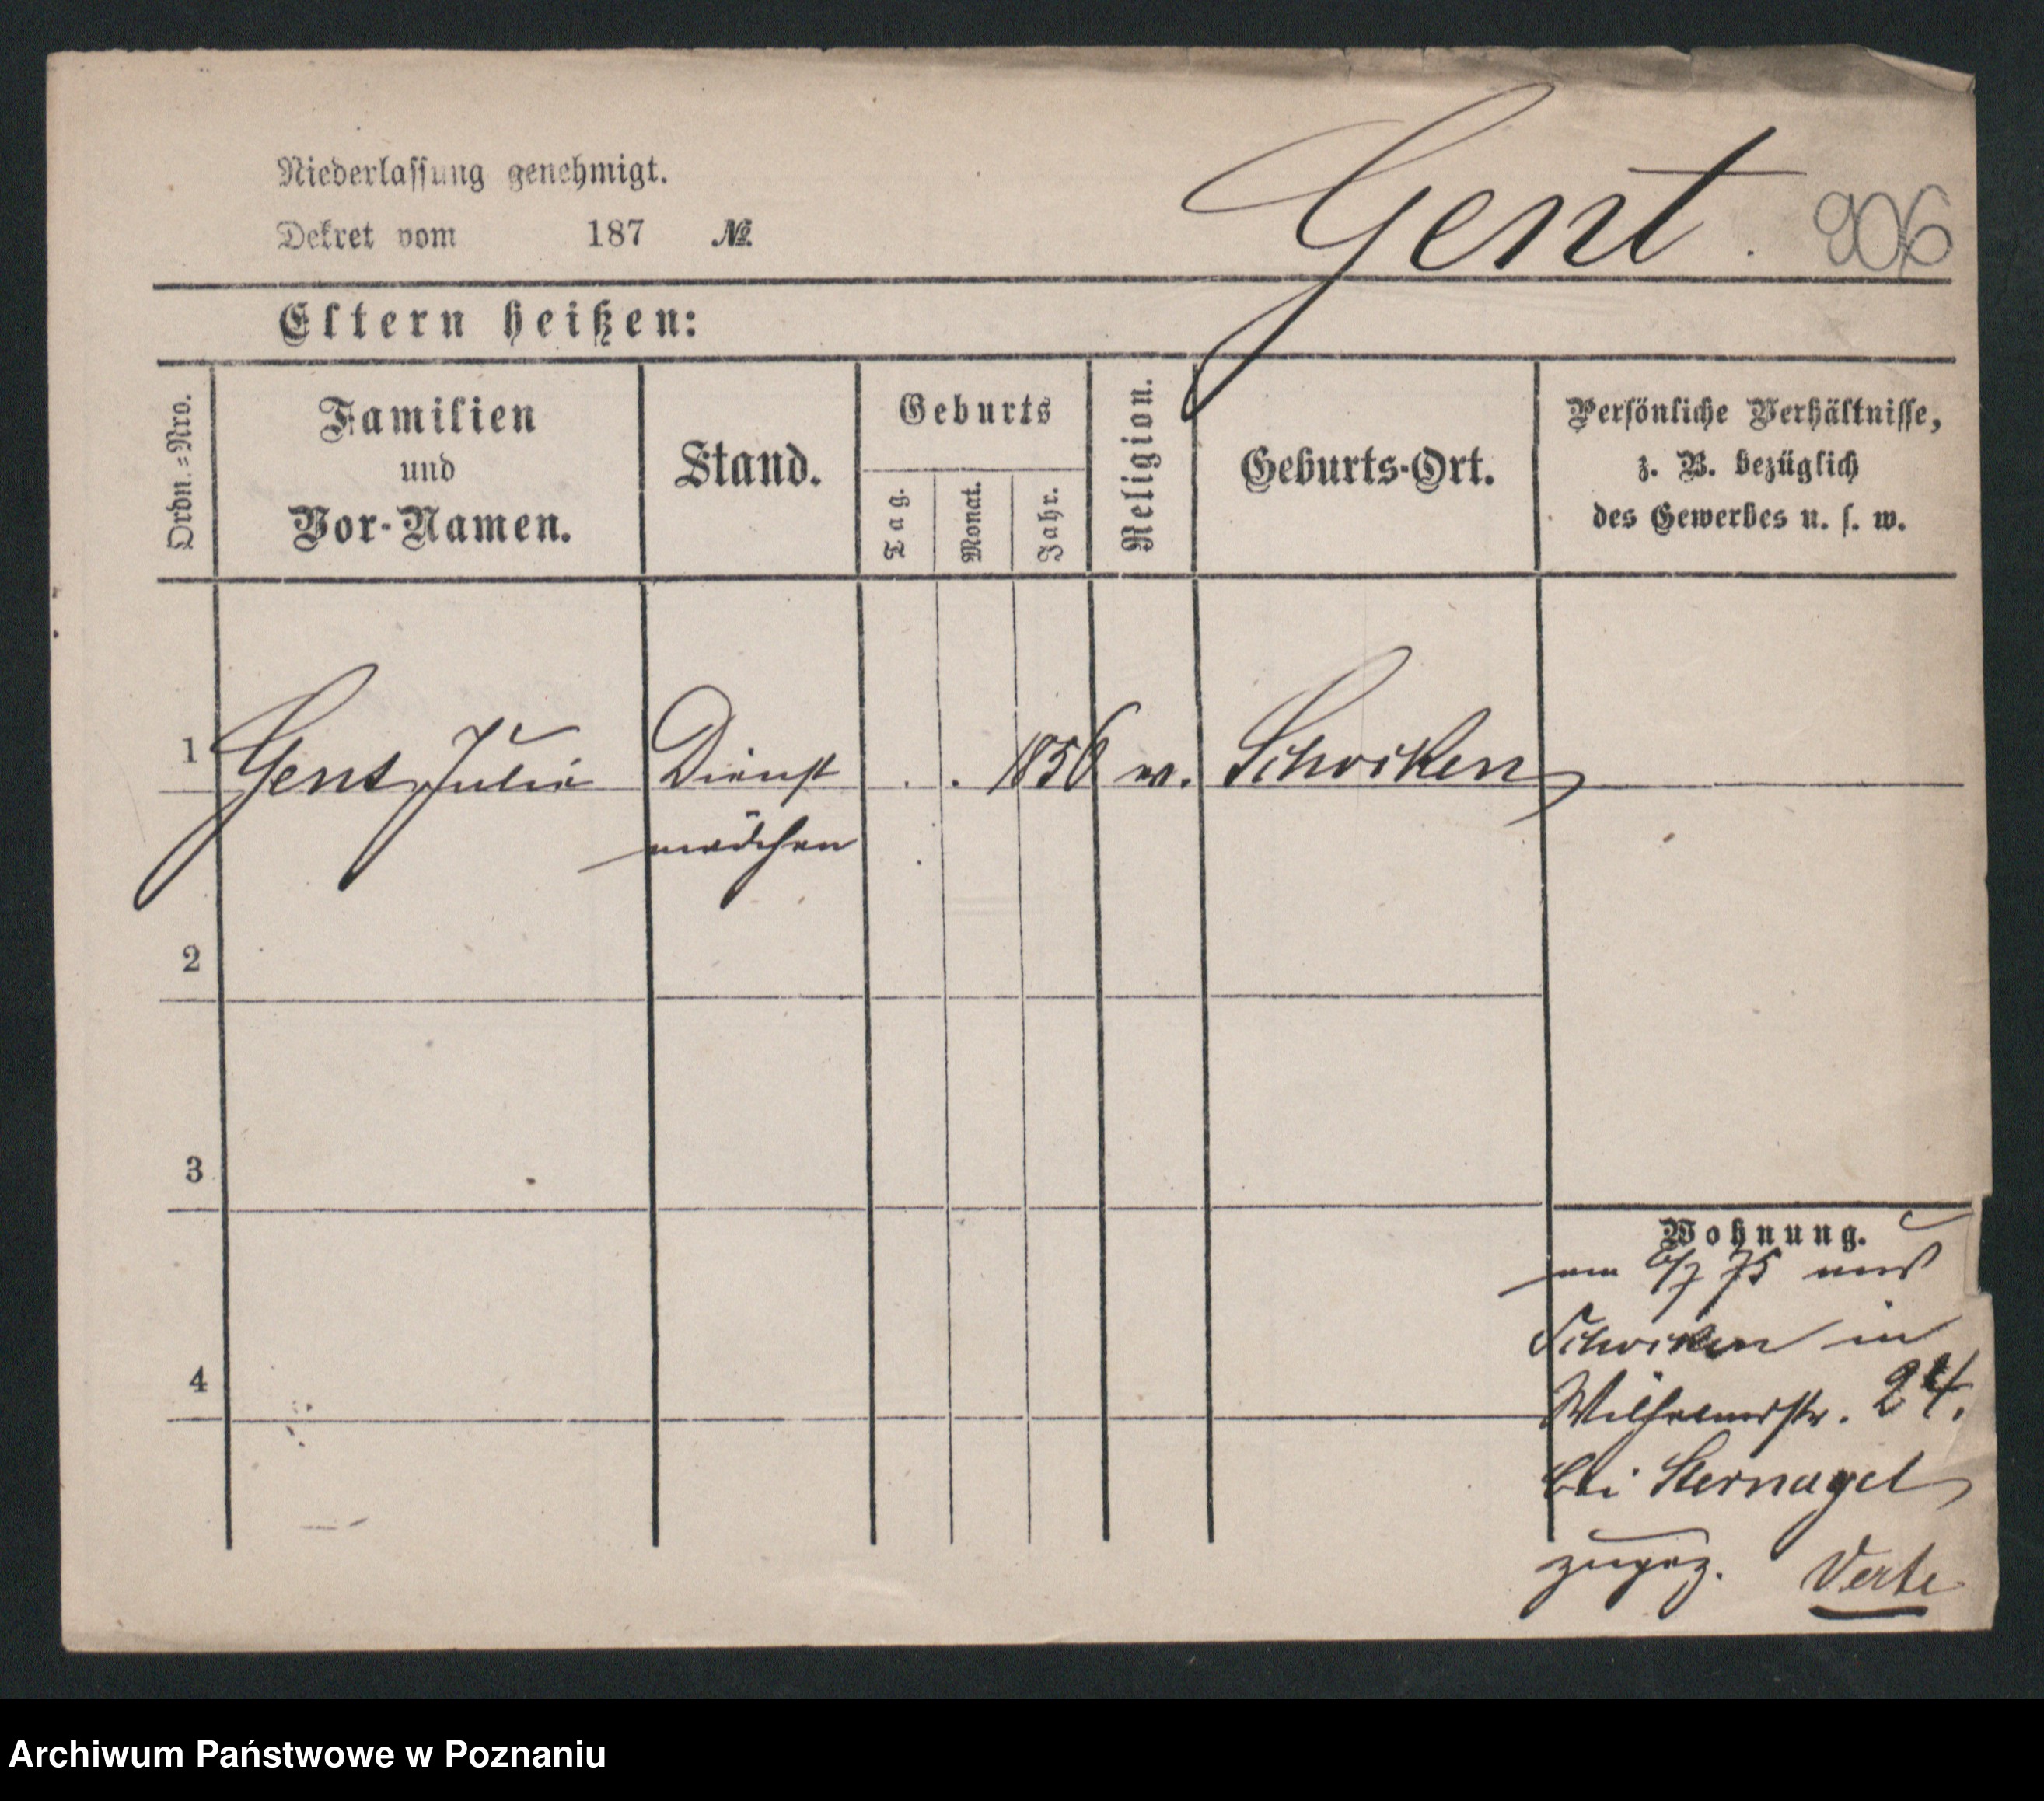 Niederlassung genehmigt.
Dekret vom 187 №
Gent. 906
Eltern heißen:
Ordn.=Nro.
Familien
und
Vor-Namen.
Stand.
Geburts
Tag.
Monat.
Jahr.
Religion.
Geburts-Ort.
Persönliche Verhältnisse,
z. B. bezüglich
des Gewerbes u. s. w.
1 Gent Julie Dienst . . 1856 Schocken
mädchen
2
3
4
Wohnung.
am 6/7 75 aus
Schocken in
Wilhelmstr. 24.
bei Sternagel
zugez. Verte
Archiwum Państwowe w Poznaniu